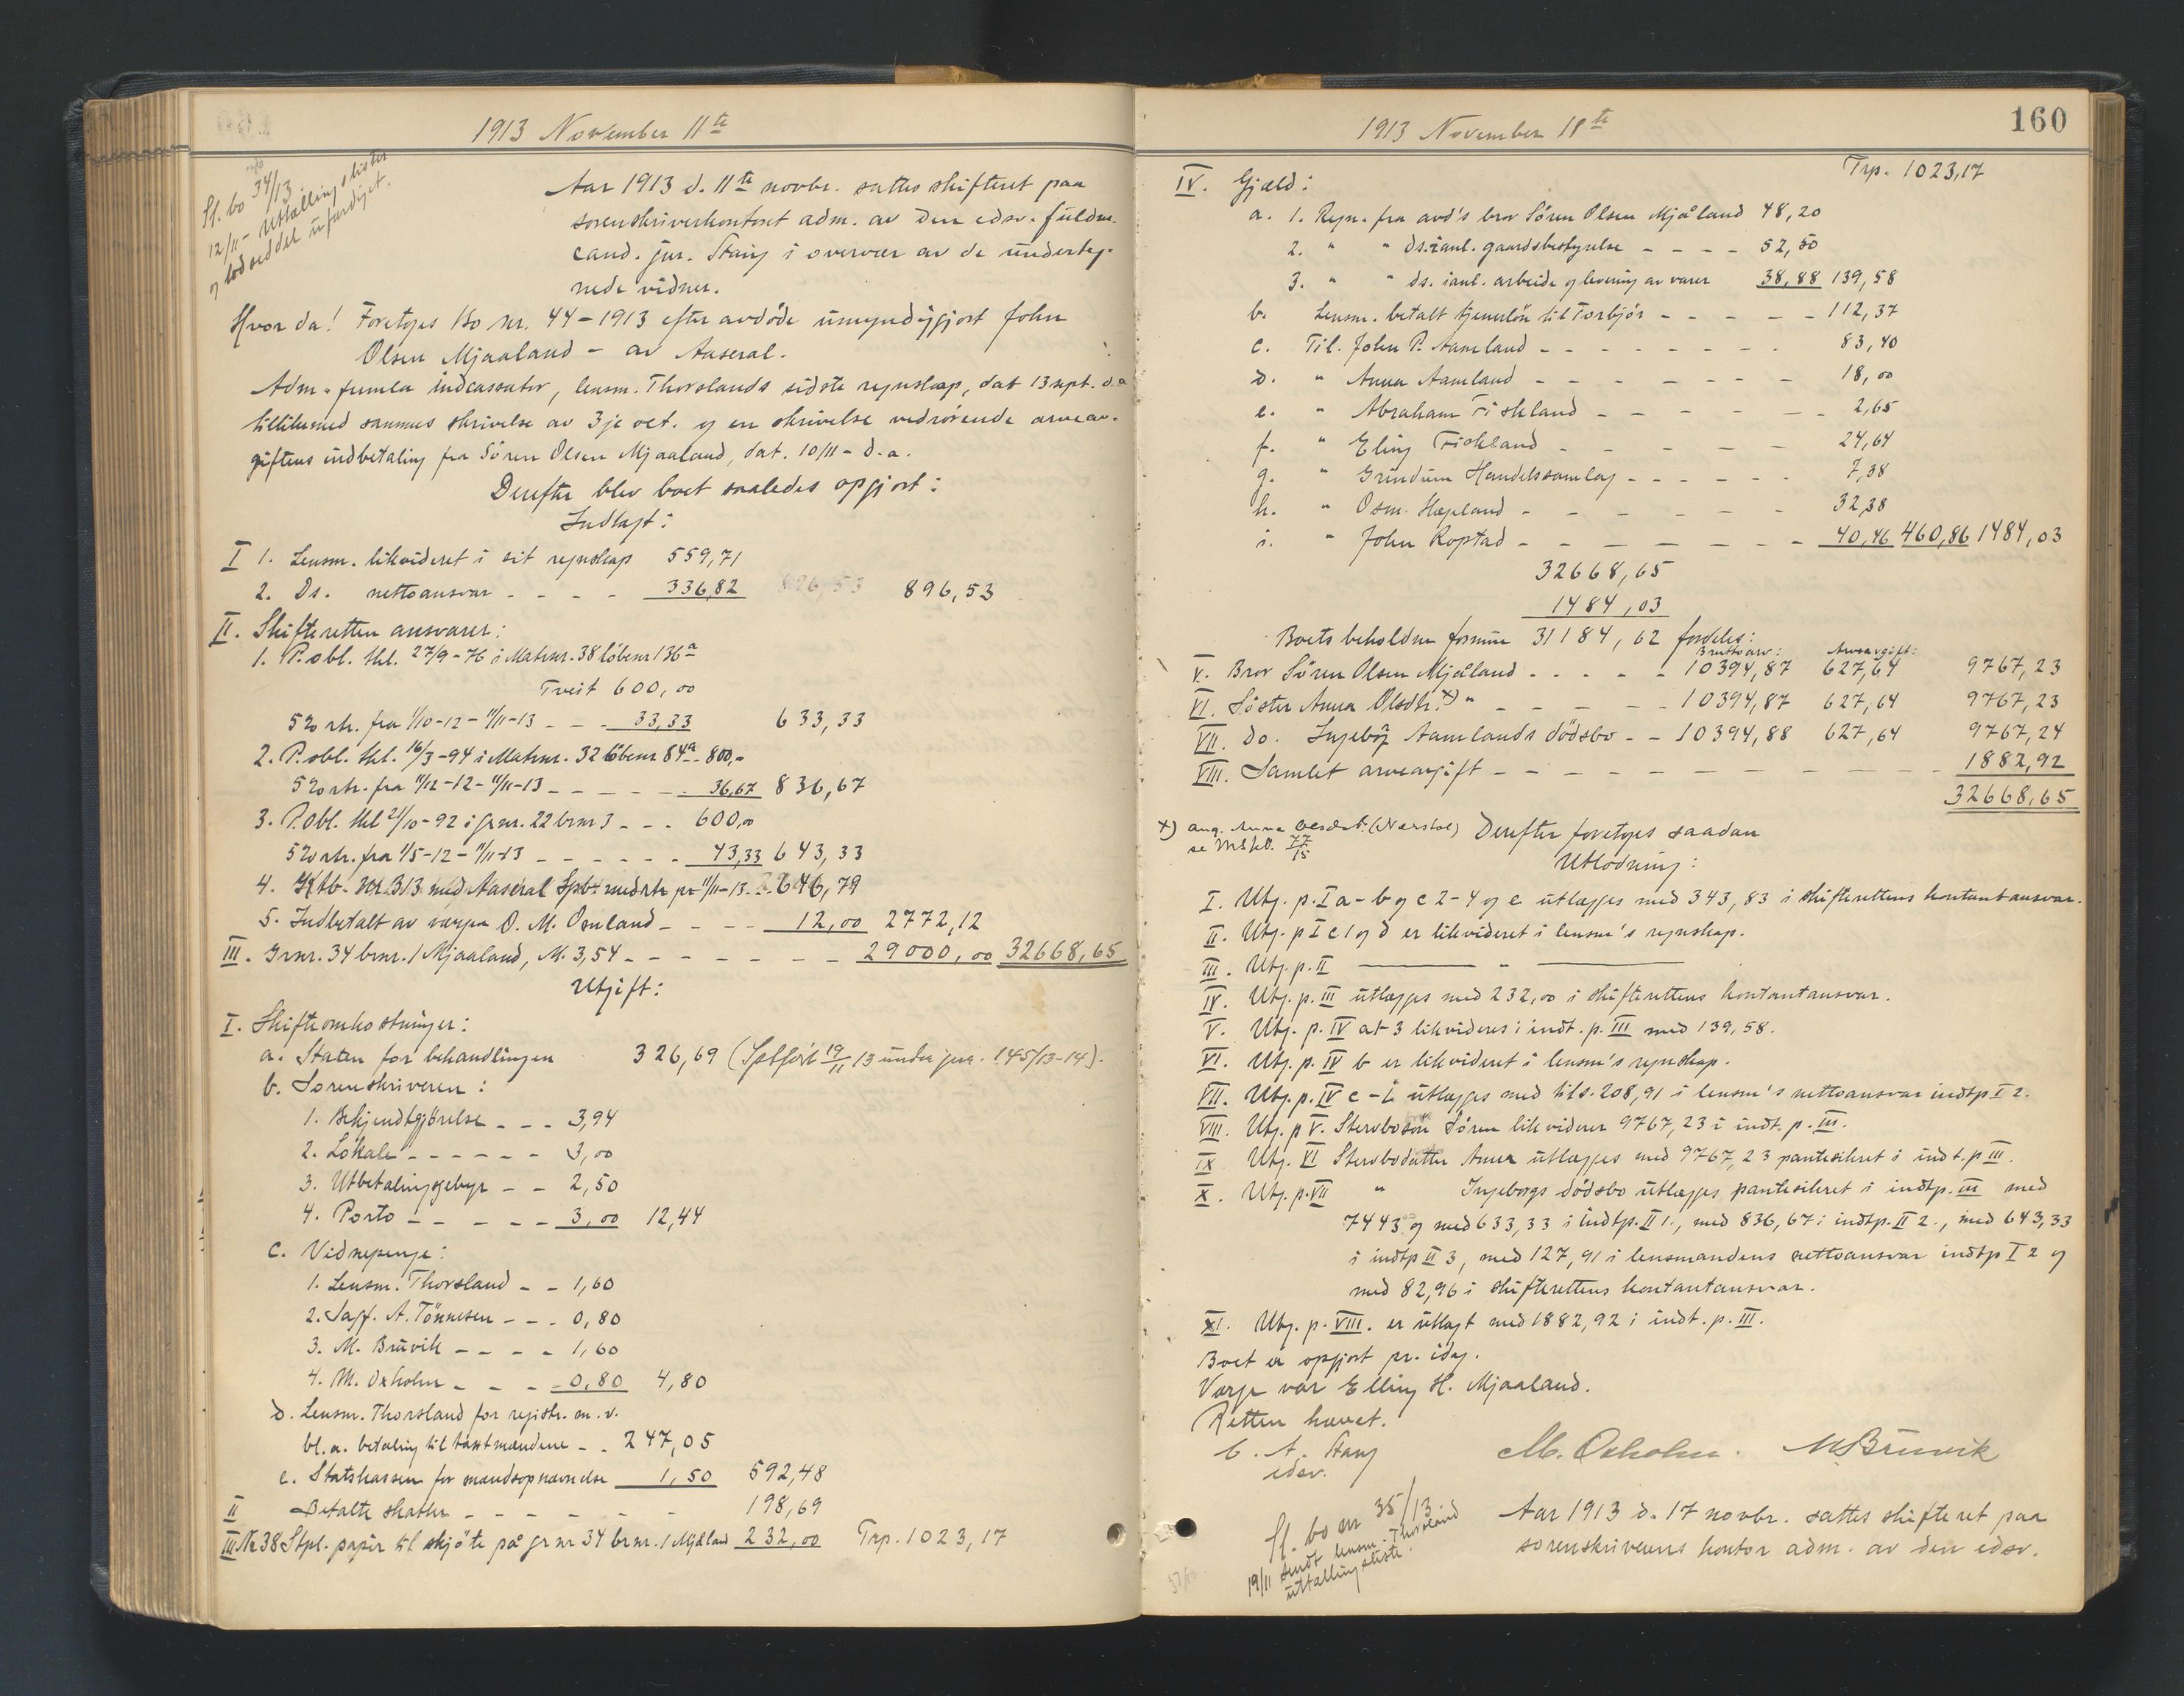 1913 November 11te
Sl. bo 34/13
12/11 - Utstallingslister
og lodseddel utfærdiget.
Aar 1913 d. 11te novbr. sattes skifteret paa
sorenskriverkontoret adm. av den edsv. fuldm.
cand. jur. Stang i overvær av de underteg-
nede vidner.
Hvor da! Foretoges Bo nr. 44 - 1913 efter avdöde umyndiggjort John
Olsen Mjaaland - av Aaseral.
Adm. fremla indcassator, lensm. Thorslands sidste regnskap, dat 13 sept. d.a
tillikemed sammes skrivelse av 3je oct. og en skrivelse vedrörende arveav-
giftens indbetaling fra Sören Olsen Mjaaland, dat. 10/11 - d.a.
Derefter blev boet saaledes opgjort:
Indtægt:
I 1. Lensm. likvideret i sit regnskap 559,71
2. Ds. nettoansvar - - - - 336,82 896,53 896,53
II. Skifteretten ansvarer:
1. P.obl. thl. 27/9-76 i Matrnr. 38 löbenr 136a
Tveit 600,00
5% rtr. fra 1/10-12 - 11/11-13 - - - 33,33 633,33
2. P.obl. thl. 16/3-94 i Matrnr. 32 löbenr 84a - 800,-
5% rtr. fra 11/12-12 - 11/11-13 - - - - - 36,67 836,67
3. P.obl. thl 21/10-92 i grnr. 22 brnr 3 - - - 600,00
5% rtr. fra 1/5-12 - 11/11-13 - - - - - - 43,33 643,33
4. Ktb. nr 313 med Aaseral Spb. med rtr pr 11/11-13 - 646,79
5. Indbetalt av værgen O. M. Omland - - - - 12,00 2772,12
III. Grnr. 34 brnr. 1 Mjaaland, M. 3,54 - - - - - - - 29000,00 32668,65
Utgift:
I. Skifteomkostninger:
a. Staten for behandlingen 326,69 (Indfört 19/11 13 under jnr. 145/13-14).
b. Sorenskriveren:
1. Bekjendtgjörelse - - - 3,94
2. Lokale - - - - - - 3,00
3. Utbetalingsgebyr - - 2,50
4. Porto - - - - - - 3,00 12,44
c. Vidnepenge:
1. Lensm. Thorsland - - 1,60
2. Sagf. A. Tönnesen - - - 0,80
3. M. Bruvik - - - - 1,60
4. M. Oxholm - - - - 0,80 4,80
d. Lensm. Thorsland for registr. m. v.
bl. a. betaling til taxtmændene - - 247,05
e. Statskassen for mændsopnævnelse 1,50 592,48
II Betalte skatter - - - - - - 198,69
III Nr 38 Stpl. papir til skjöte på grnr 34 brnr. 1 Mjåland 232,00 Trp. 1023,17
1913 November 11te
160
Trp. 1023,17
IV. Gjæld:
a. 1. Regn. fra avd's bror Sören Olsen Mjåland 48,20
2. " " ds. ianl. gaardsbestyrelse - - - - 52,50
3. " " ds. ianl. arbeide og levering av varer 38,88 139,58
b. Lensm. betalt tjenerlön til Torbjör - - - - - 112,37
c. Til John P. Aamland - - - - - - - 83,40
d. " Anna Aamland - - - - - - - 18,00
e. " Abraham Fiskland - - - - - - 2,65
f. " Eling Fiskland - - - - - 24,64
g. " Grundum Handelssamlag - - - - - - 7,38
h. " Osm. Hægeland - - - - - - 32,38
i. " John Roptad - - - - - - - 40,46 460,86 1484,03
32668,65
1484,03
Boets beholdne formue 31184,62 fordeles:
Bruttoarv: Arveavgift:
V. Bror Sören Olsen Mjåland - - - - - 10394,87 627,64 9767,23
VI. Söster Anna Olsdtr. x) " - - - - - 10394,87 627,64 9767,23
VII. Do. Ingeborg Aamlands dödsbo - - 10394,88 627,64 9767,24
VIII. Samlet arveavgift - - - - - - - - - - 1882,92
32668,65
x) ang. Anna Olsdat. se 77/15
Derefter foretoges saadan
Utlodning:
I. Utg. p. I a - b og c 2-4 og e utlægges med 343,83 i skifterettens kontantansvar.
II. Utg. p I c 1 og d er likvideret i lensm's regnskap.
III. Utg. p. II ——— " ———
IV. Utg. p. III utlægges med 232,00 i skifterettens kontantansvar.
V. Utg. p. IV a1-3 likvideres i indt. p. III med 139,58.
VI. Utg. p. IV b er likvideret i lensm's regnskap.
VII. Utg. p. IV c - i utlægges med tils. 208,91 i lensm's nettoansvar indtp I 2.
VIII. Utg. p V. Stervbosön Sören likviderer 9767,23 i indt. p. III.
IX Utg. VI Stervbodatter Anna utlægges med 9767,23 pantesikret i indt. p III.
X. Utg. p. VII " Ingeborgs dödsbo utlægges pantesikret i indtp. III med
7443 og med 633,33 i indtp. II 1., med 836,67 i indtp. II 2., med 643,33
i indtp II 3, med 127,91 i lensmandens nettoansvar indtp I 2 og
med 82,96 i skifterettens kontantansvar.
XI. Utg. p. VIII. er utlagt med 1882,92 i indt. p. III.
Boet er opgjort pr. idag.
Værge var Elling H. Mjaaland.
Retten hævet.
C. A. Stang
edsv.
M. Oxholm. M Bruvik
Sl. bo nr 35/13.
19/11 sendt lensm. Thorsland
utstallingsliste.
Aar 1913 d. 17 novbr. sattes skifteret paa
sorenskriverens kontor adm. av den edsv.